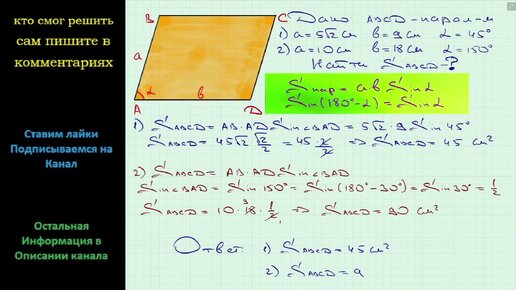 кто смог решить
сам пишите в
комментариях
Ставим лайки
Подписываемся на
Канал
Остальная
Информация в
Описании канала
B C
a
α b
A D
Дано: ABCD - парал-м
1) a = 5√2 см b = 9 см α = 45°
2) a = 10 см b = 18 см α = 150°
Найти SABCD - ?
Sпар = a b Sin α
Sin(180° - α) = Sin α
1) SABCD = AB · AD Sin∠BAD = 5√2 · 9 Sin 45°
SABCD = 45√2 √2/2 = 45 · 2/2 ⇒ SABCD = 45 см²
2) SABCD = AB · AD Sin∠BAD
Sin∠BAD = Sin 150° = Sin(180° - 30°) = Sin 30° = 1/2
SABCD = 10 · 18 9 · 1/2 1 ⇒ SABCD = 90 см²
Ответ: 1) SABCD = 45 см²
2) SABCD = 9